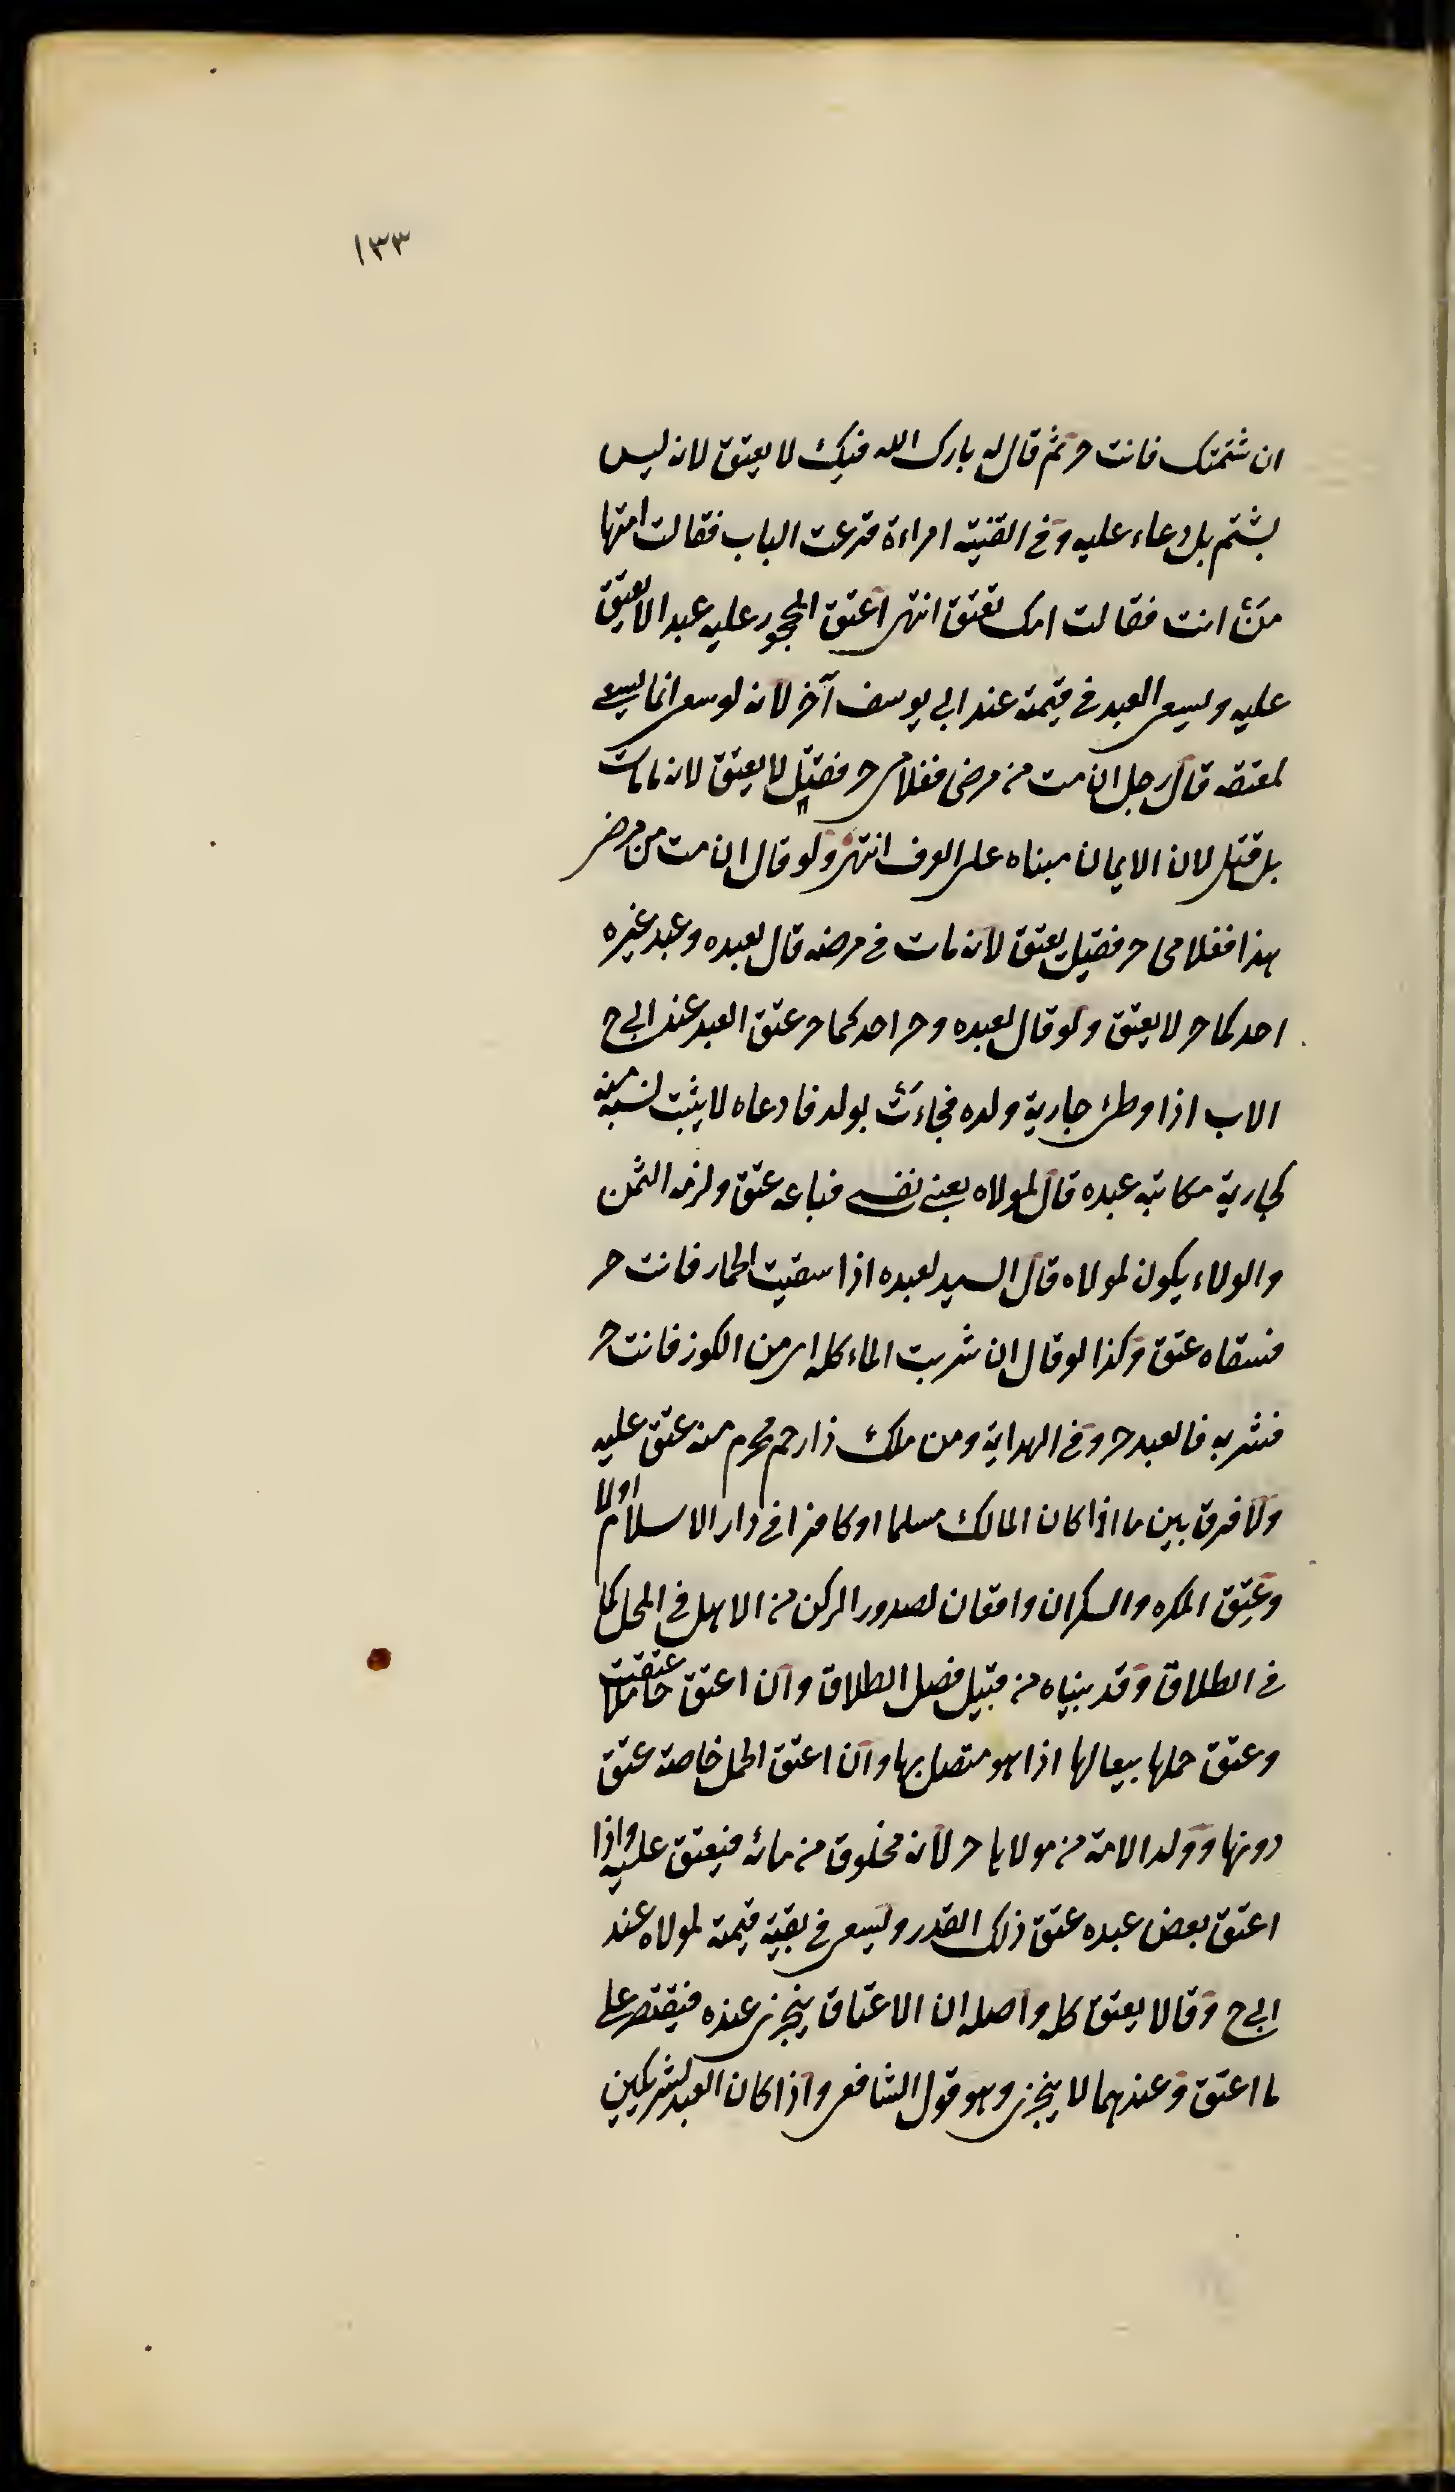 ١٣٣
ان شتمتك فانت حر ثم قال له بارك الله فيك لا يعتق لانه ليس
بشتم بل دعاء عليه وفى القنية امراءة قرعت الباب فقالت امتها
من انت فقالت امك تعتق انتهى اعتق المحجور عليه عبدا لا يعتق
عليه ويسعى العبد فى قيمته عند ابى يوسف آخر لانه لو سعى انما يسعى
لمعتقه قال رجل ان مت من مرضى فغلامى حر فقتل لا يعتق لانه ما مات
بل قتل لان الايمان مبناه على العرف انتهى ولو قال ان مت من مرضى
هذا فغلامى حر فقتل يعتق لانه مات فى مرضه قال لعبده وعبد غيره
احدكما حر لا يعتق ولو قال لعبده وحر احدكما حر عتق العبد عند ابى ح
الاب اذا وطئ جارية ولده فجاءت بولد فادعاه لا يثبت نسبه منه
كجارية مكاتبه عبده قال لمولاه بعنى نفسى فباعه عتق ولزمه الثمن
والولاء يكون لمولاه قال السيد لعبده اذا سقيت الحمار فانت حر
فسقاه عتق وكذا لو قال ان شربت الماء كله اى من الكوز فانت حر
فشربه فالعبد حر وفى الهداية ومن ملك ذا رحم محرم منه عتق عليه
ولا فرق بين ما اذا كان المالك مسلما او كافرا فى دار الاسلام اولا
وعتق المكره والسكران واقعان لصدور الركن من الاهل فى المحل كما
فى الطلاق وقد بيناه من قبيل فصل الطلاق وان اعتق حاملا عتقت
وعتق حملها تبعا لها اذا هو متصل بها وان اعتق الحمل خاصة عتق
دونها وولد الامة من مولاها حر لانه مخلوق من مائه فيعتق عليه واذا
اعتق بعض عبده عتق ذلك القدر ويسعى فى بقية قيمته لمولاه عند
ابى ح وقالا يعتق كله واصله ان الاعتاق يتجزى عنده فيقتصر على
ما اعتق وعندهما لا يتجزى وهو قول الشافعى واذا كان العبد لشريكين